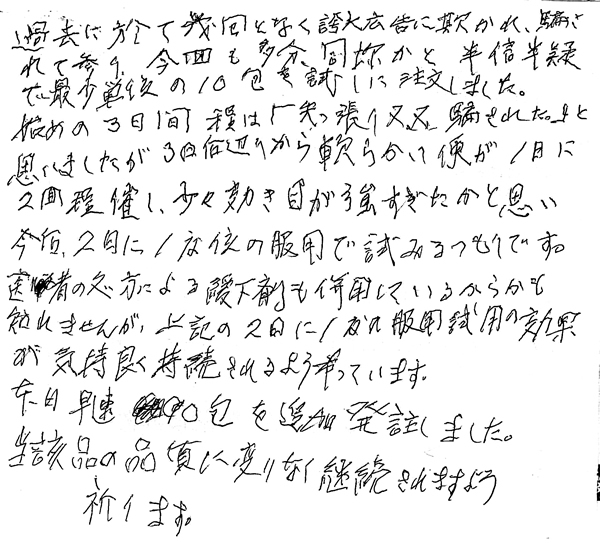 過去に於て幾回となく誇大広告に欺かれ、騙さ
れて参り、今回も多分同様かと半信半疑
で最少単位の10包を試しに注文しました。
始めの3日間程は「矢っ張り又々騙された。」と
思いましたが3日目辺りから軟らかい便が1日に
2回程催し、少々効き目が強すぎたかと思い
今后、2日に1度位の服用で試みるつもりです。
医者の処方による緩下剤も併用しているからかも
知れませんが、上記の2日に1度の服用試用の効果
が気持良く持続されるよう希っています。
本日早速 0包を追加発註しました。
当該品の品質に変りなく継続されますよう
祈ります。